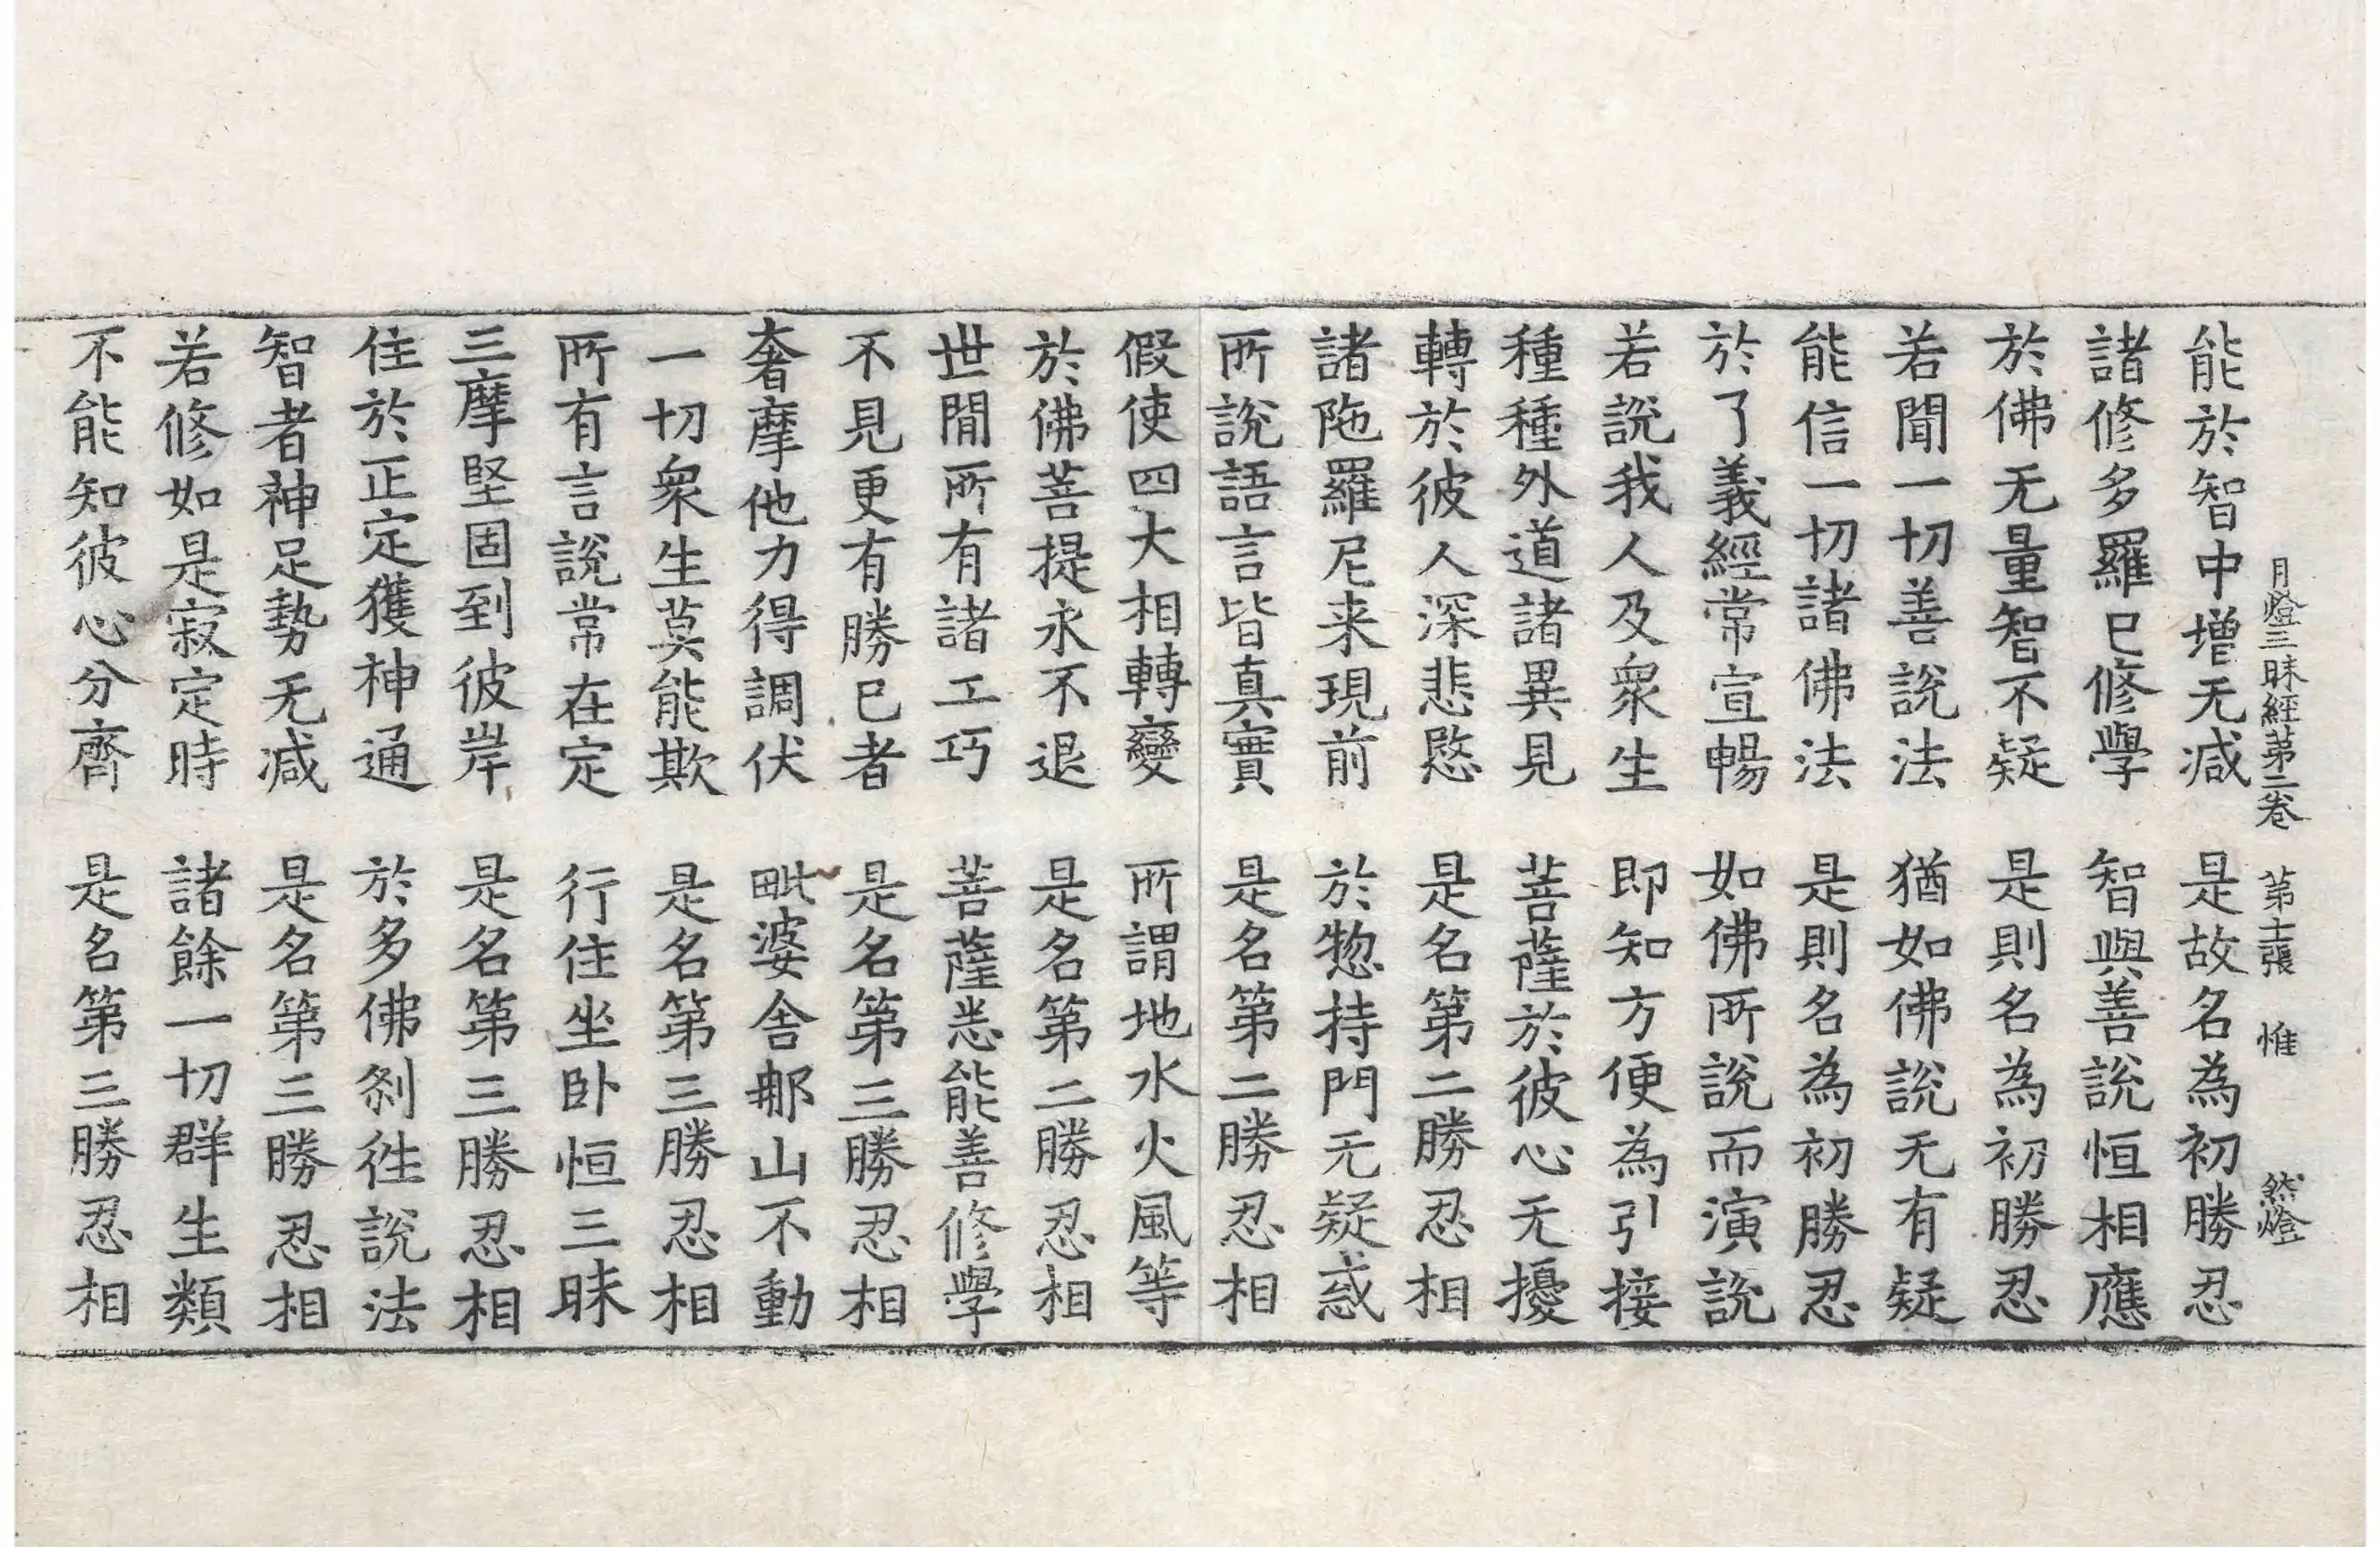 月燈三昧經第二卷 第十二張 惟 然燈
能於智中增无減 是故名為初勝忍
諸修多羅已修學 智與善說恒相應
於佛无量智不疑 是則名為初勝忍
若聞一切善說法 猶如佛說无有疑
能信一切諸佛法 是則名為初勝忍
於了義經常宣暢 如佛所說而演說
若說我人及衆生 即知方便為引接
種種外道諸異見 菩薩於彼心无擾
轉於彼人深悲愍 是名第二勝忍相
諸陁羅尼来現前 於惣持門无疑惑
所說語言皆真實 是名第二勝忍相
假使四大相轉變 所謂地水火風等
於佛菩提永不退 是名第二勝忍相
世間所有諸工巧 菩薩悉能善修學
不見更有勝已者 是名第三勝忍相
奢摩他力得調伏 毗婆舍那山不動
一切衆生莫能欺 是名第三勝忍相
所有言說常在定 行住坐卧恒三昧
三摩堅固到彼岸 是名第三勝忍相
住於正定獲神通 於多佛刹徃說法
智者神足勢无減 是名第三勝忍相
若修如是寂定時 諸餘一切群生類
不能知彼心分齊 是名第三勝忍相